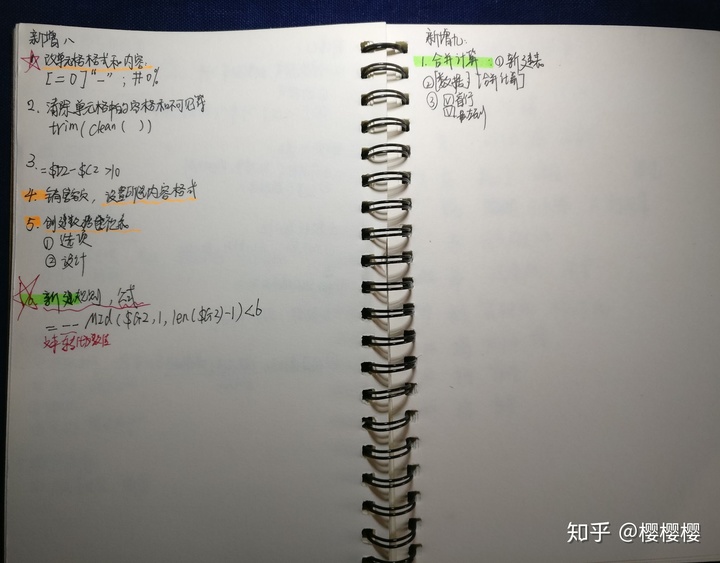 新增八
☆ 改单元格格式和内容。
[=0]"-";#0%
2. 清除单元格中的空格和不可见字符
trim(clean( ))
3.
=$D2-$C2>10
4. 销量额, 设置所选内容格式
5. 创建数据透视表
① 选项
② 设计
6. 新建规则, 公式
=--Mid($G2,1,len($G2)-1)<6
文本转化为数值
新增九:
1. 合并计算 ①新建表
②[数据][合并计算]
③ ☑首行
☑最左列
知乎 @樱樱樱